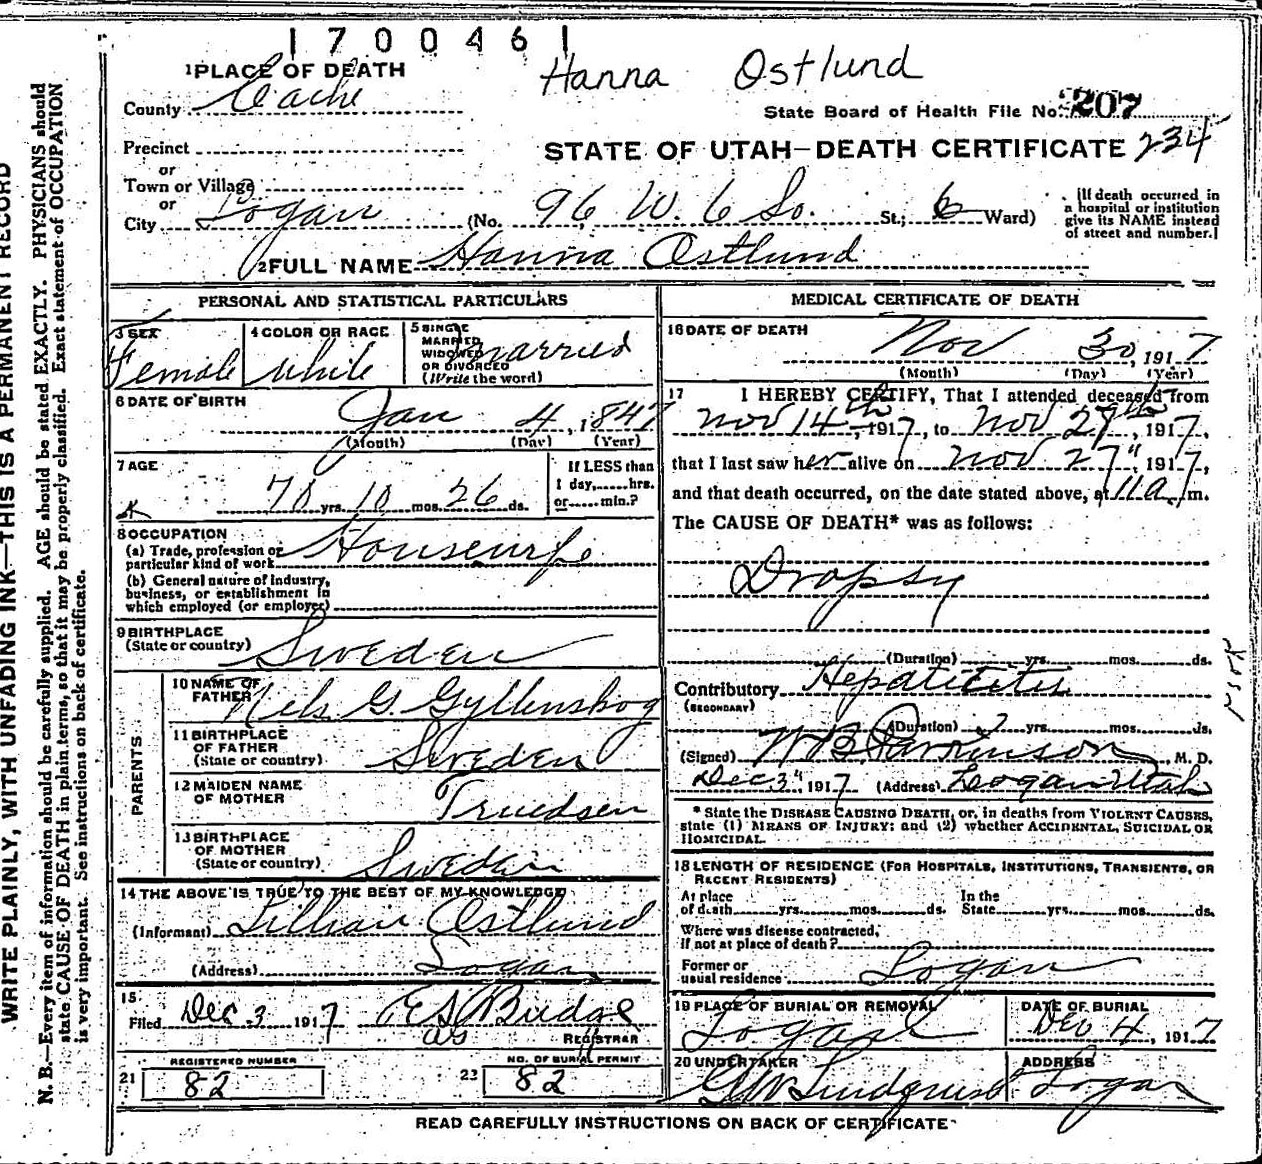 1700461
1 PLACE OF DEATH
Hanna Ostlund
County Cache
State Board of Health File No. 207
Precinct
STATE OF UTAH—DEATH CERTIFICATE 234
or
Town or Village
or
City Logan (No. 96 W. 6 So. St.; 6 Ward)
[If death occurred in
a hospital or institution
give its NAME instead
of street and number.]
2 FULL NAME Hanna Ostlund
PERSONAL AND STATISTICAL PARTICULARS
3 SEX
Female
4 COLOR OR RACE
White
5 SINGLE
MARRIED
WIDOWED
OR DIVORCED
(Write the word)
married
6 DATE OF BIRTH
Jan 4, 1847
(Month) (Day) (Year)
7 AGE
70 yrs. 10 mos. 26 ds.
If LESS than
1 day,......hrs.
or......min.?
8 OCCUPATION
(a) Trade, profession or
particular kind of work Housewife
(b) General nature of industry,
business, or establishment in
which employed (or employer)
9 BIRTHPLACE
(State or country) Sweden
PARENTS
10 NAME OF
FATHER Nels G. Gyllenskog
11 BIRTHPLACE
OF FATHER
(State or country) Sweden
12 MAIDEN NAME
OF MOTHER Truedsen
13 BIRTHPLACE
OF MOTHER
(State or country) Sweden
14 THE ABOVE IS TRUE TO THE BEST OF MY KNOWLEDGE
(Informant) Lillian Ostlund
(Address) Logan
15
Filed Dec 3 1917 E S Budge
REGISTRAR
REGISTERED NUMBER
21 82
NO. OF BURIAL PERMIT
23 82
MEDICAL CERTIFICATE OF DEATH
16 DATE OF DEATH
Nov 30, 1917
(Month) (Day) (Year)
17 I HEREBY CERTIFY, That I attended deceased from
Nov 14th, 1917, to Nov 29th, 1917,
that I last saw her alive on Nov 27", 1917,
and that death occurred, on the date stated above, at 11 a. m.
The CAUSE OF DEATH* was as follows:
Dropsy
(Duration) yrs. mos. ds.
Contributory Hepatitis
(SECONDARY)
(Duration) 2 yrs. mos. ds.
(Signed) W B Parkinson, M. D.
Dec 3", 1917 (Address) Logan Utah
* State the DISEASE CAUSING DEATH, or, in deaths from VIOLENT CAUSES,
state (1) MEANS OF INJURY; and (2) whether ACCIDENTAL, SUICIDAL OR
HOMICIDAL.
18 LENGTH OF RESIDENCE (FOR HOSPITALS, INSTITUTIONS, TRANSIENTS, OR
RECENT RESIDENTS)
At place
of death......yrs.......mos.......ds.
In the
State......yrs.......mos.......ds.
Where was disease contracted,
if not at place of death?
Former or
usual residence Logan
19 PLACE OF BURIAL OR REMOVAL
Logan
DATE OF BURIAL
Dec 4, 1917
20 UNDERTAKER
G W Lindquist
ADDRESS
Logan
READ CAREFULLY INSTRUCTIONS ON BACK OF CERTIFICATE
WRITE PLAINLY, WITH UNFADING INK—THIS IS A PERMANENT RECORD
N. B.—Every item of information should be carefully supplied. AGE should be stated EXACTLY. PHYSICIANS should
state CAUSE OF DEATH in plain terms, so that it may be properly classified. Exact statement of OCCUPATION
is very important. See instructions on back of certificate.